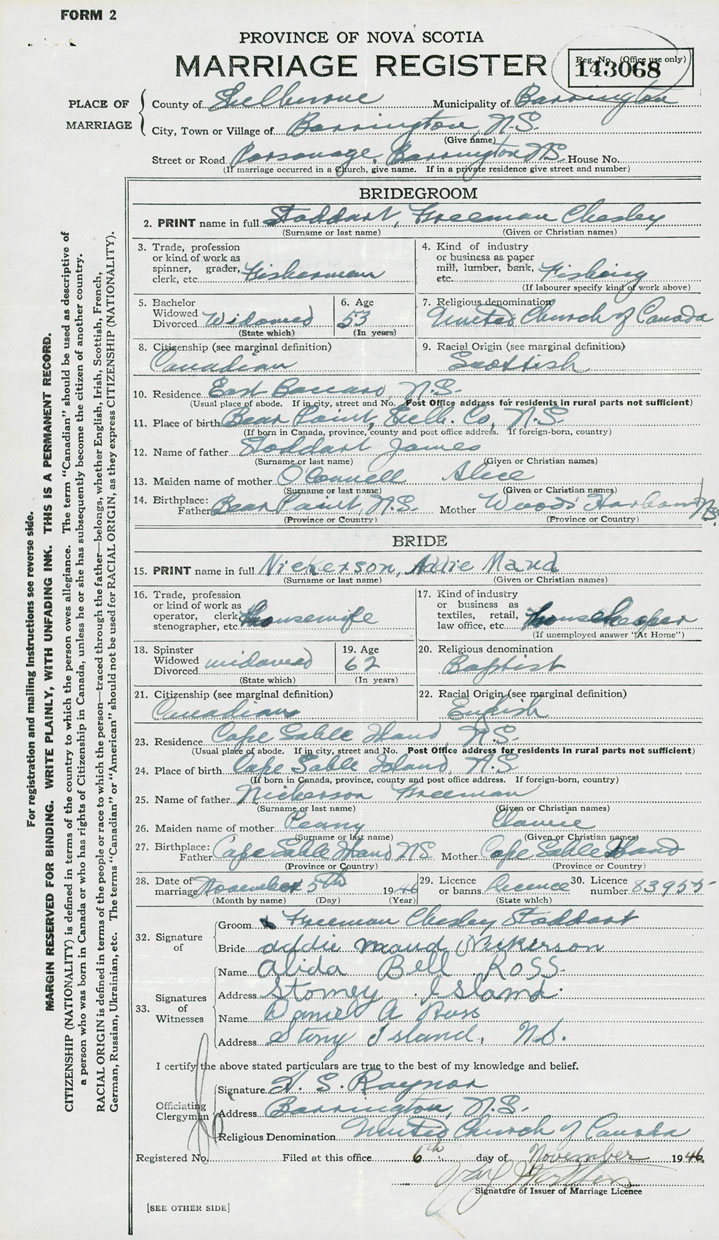 FORM 2
PROVINCE OF NOVA SCOTIA
MARRIAGE REGISTER
Reg. No. (Office use only)
143068
PLACE OF MARRIAGE
County of Shelburne Municipality of Barrington
City, Town or Village of Barrington, N.S.
(Give name)
Street or Road Parsonage, Barrington N.S. House No.
(If marriage occurred in a church, give name. If in a private residence give street and number)
BRIDEGROOM
2. PRINT name in full Stoddart, Freeman Chesley
(Surname or last name) (Given or Christian names)
3. Trade, profession or kind of work as spinner, grader, clerk, etc. Fisherman
4. Kind of industry or business as paper mill, lumber, bank, etc. Fishing
(If labourer specify kind of work above)
5. Bachelor Widowed Divorced Widowed
(State which)
6. Age 53
(In years)
7. Religious denomination United Church of Canada
8. Citizenship (see marginal definition) Canadian
9. Racial Origin (see marginal definition) Scottish
10. Residence East Baccaro, N.S.
(Usual place of abode. If in city, street and No. Post Office address for residents in rural parts not sufficient)
11. Place of birth Bear Point, Shelb. Co, N.S.
(If born in Canada, province, county and post office address. If foreign-born, country)
12. Name of father Stoddart James
(Surname or last name) (Given or Christian names)
13. Maiden name of mother O'Connell Alice
(Surname or last name) (Given or Christian names)
14. Birthplace: Father Bear Point, N.S. Mother Woods Harbour N.S.
(Province or Country) (Province or Country)
BRIDE
15. PRINT name in full Nickerson, Addie Maud
(Surname or last name) (Given or Christian names)
16. Trade, profession or kind of work as operator, clerk stenographer, etc. Housewife
17. Kind of industry or business as textiles, retail, law office, etc. Housekeeper
(If unemployed answer "At Home")
18. Spinster Widowed Divorced widowed
(State which)
19. Age 62
(In years)
20. Religious denomination Baptist
21. Citizenship (see marginal definition) Canadian
22. Racial Origin (see marginal definition) English
23. Residence Cape Sable Island N.S.
(Usual place of abode. If in city, street and No. Post Office address for residents in rural parts not sufficient)
24. Place of birth Cape Sable Island, N.S.
(If born in Canada, province, county and post office address. If foreign-born, country)
25. Name of father Nickerson Freeman
(Surname or last name) (Given or Christian names)
26. Maiden name of mother
(Surname or last name) (Given or Christian names)
27. Birthplace: Father Cape Sable Island NS Mother Cape Sable Island
(Province or Country) (Province or Country)
28. Date of marriage November 5th 1946
(Month by name) (Day) (Year)
29. Licence or banns licence
(State which)
30. Licence number 83955
32. Signature of
Groom Freeman Chesley Stoddart
Bride addie maud Nickerson
33. Signatures of Witnesses
Name Alida Bell Ross.
Address Stoney Island.
Name Daniel A Ross
Address Stony Island, N.S.
I certify the above stated particulars are true to the best of my knowledge and belief.
Officiating Clergyman
Signature H. S. Raynor
Address Barrington, N.S.
Religious Denomination United Church of Canada
Registered No. Filed at this office 6th day of November 1946.
Signature of Issuer of Marriage Licence
[SEE OTHER SIDE]
For registration and mailing instructions see reverse side.
MARGIN RESERVED FOR BINDING. WRITE PLAINLY, WITH UNFADING INK. THIS IS A PERMANENT RECORD.
CITIZENSHIP (NATIONALITY) is defined in terms of the country to which the person owes allegiance. The term "Canadian" should be used as descriptive of
a person who was born in Canada or who has rights of Citizenship in Canada, unless he or she has subsequently become the citizen of another country.
RACIAL ORIGIN is defined in terms of the people or race to which the person—traced through the father—belongs, whether English, Irish, Scottish, French,
German, Russian, Ukrainian, etc. The terms "Canadian" or "American" should not be used for RACIAL ORIGIN, as they express CITIZENSHIP (NATIONALITY).